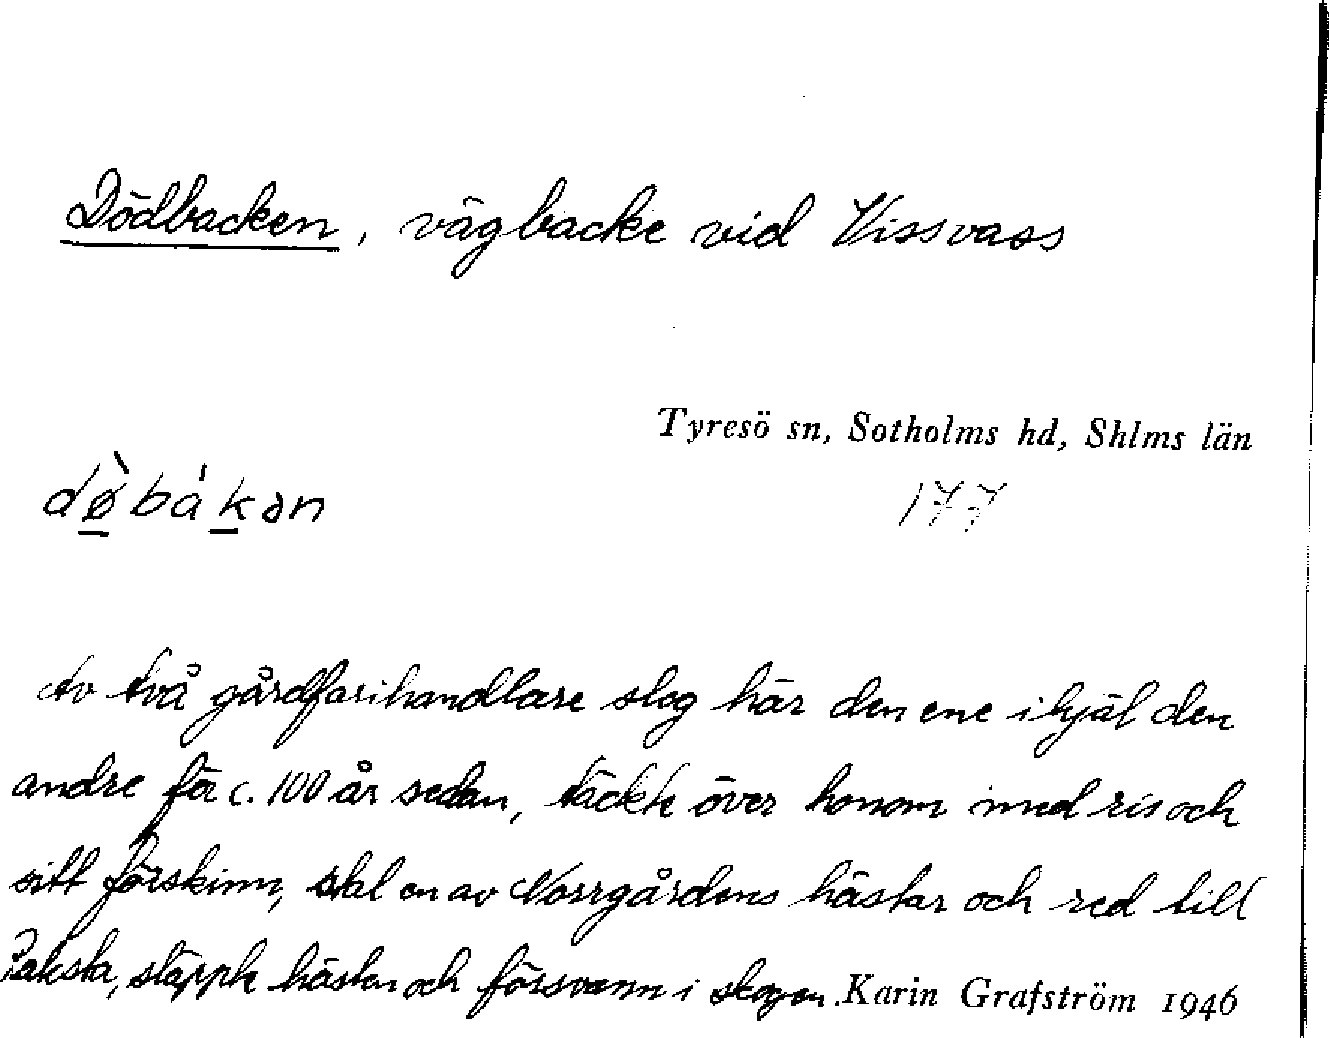 Dödbacken, vägbacke vid Vissvass
Tyresö sn, Sotholms hd, Shlms län
dø̀bákən
177
Av två gårdfarihandlare slog här den ene ihjäl den
andre för c. 100 år sedan, täckte över honom med ris och
sitt förskinn, stal en av Norrgårdens hästar och red till
Raksta, släppte hästen och försvann i skogen. Karin Grafström 1946